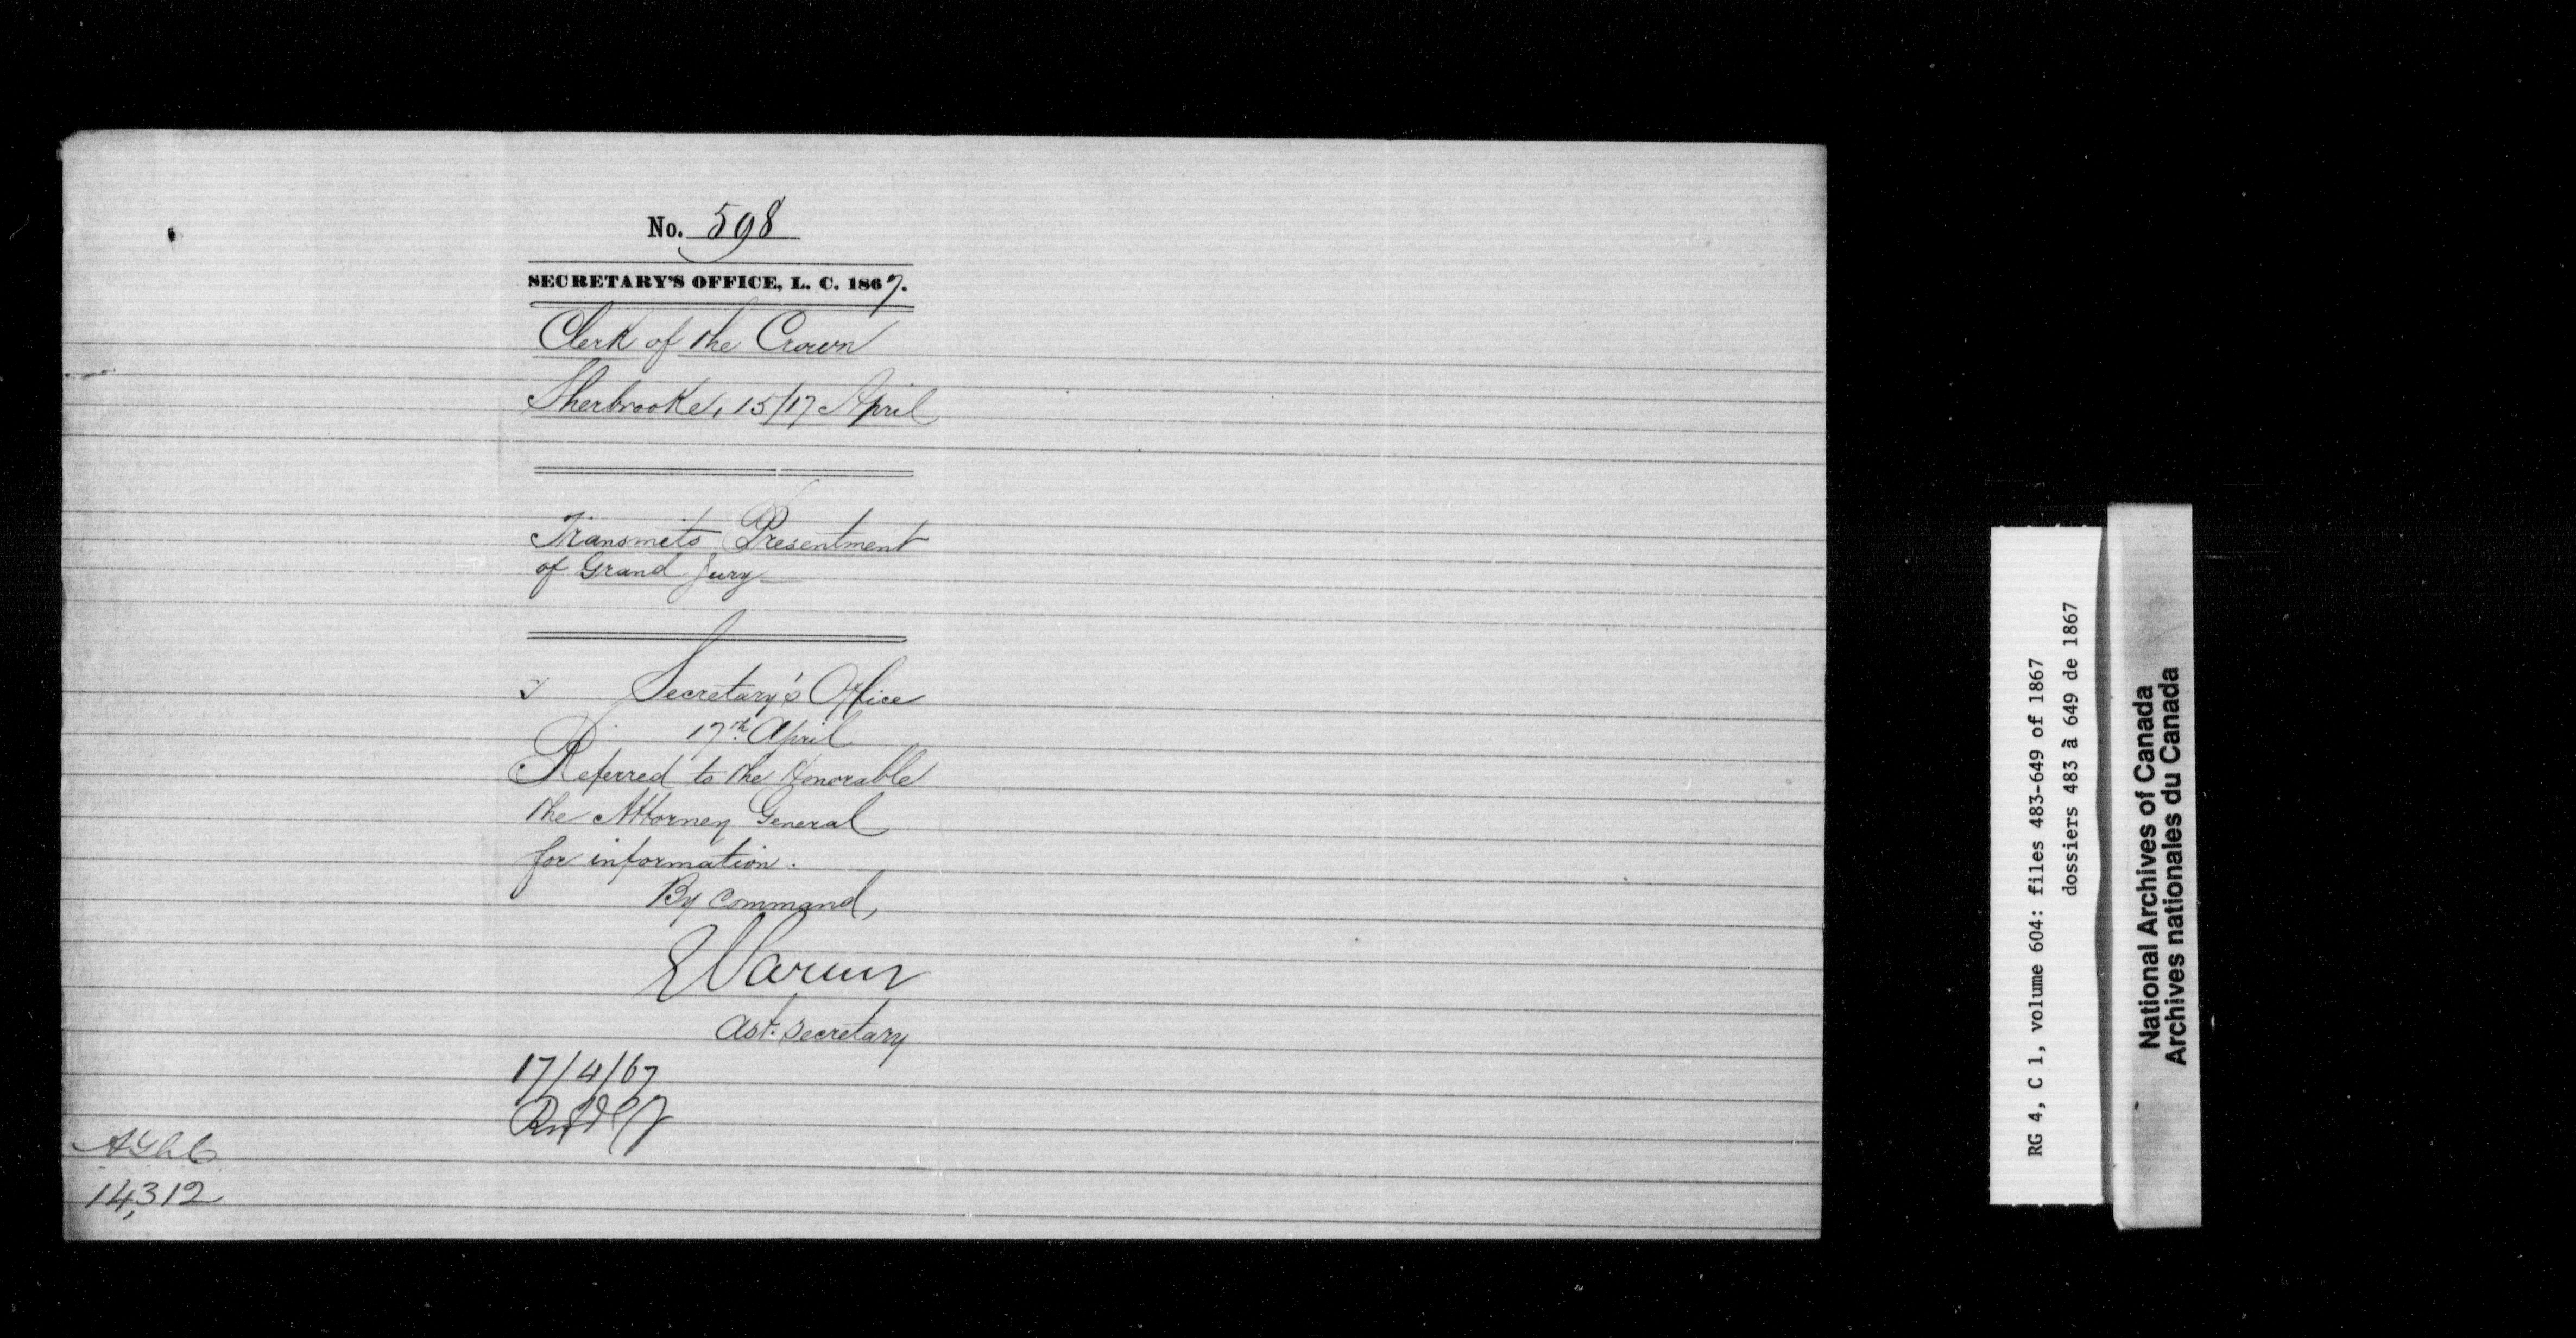 No. 598
SECRETARY'S OFFICE, L. C. 1867.
Clerk of the Crown
Sherbrooke, 15/17 April
Transmits Presentment
of Grand Jury
Secretary's Office
17th April
Referred to the Honorable
the Attorney General
for information.
By Command,
Ast. Secretary
17/4/67
14,312
RG 4, C 1, volume 604: files 483-649 of 1867
dossiers 483 à 649 de 1867
National Archives of Canada
Archives nationales du Canada